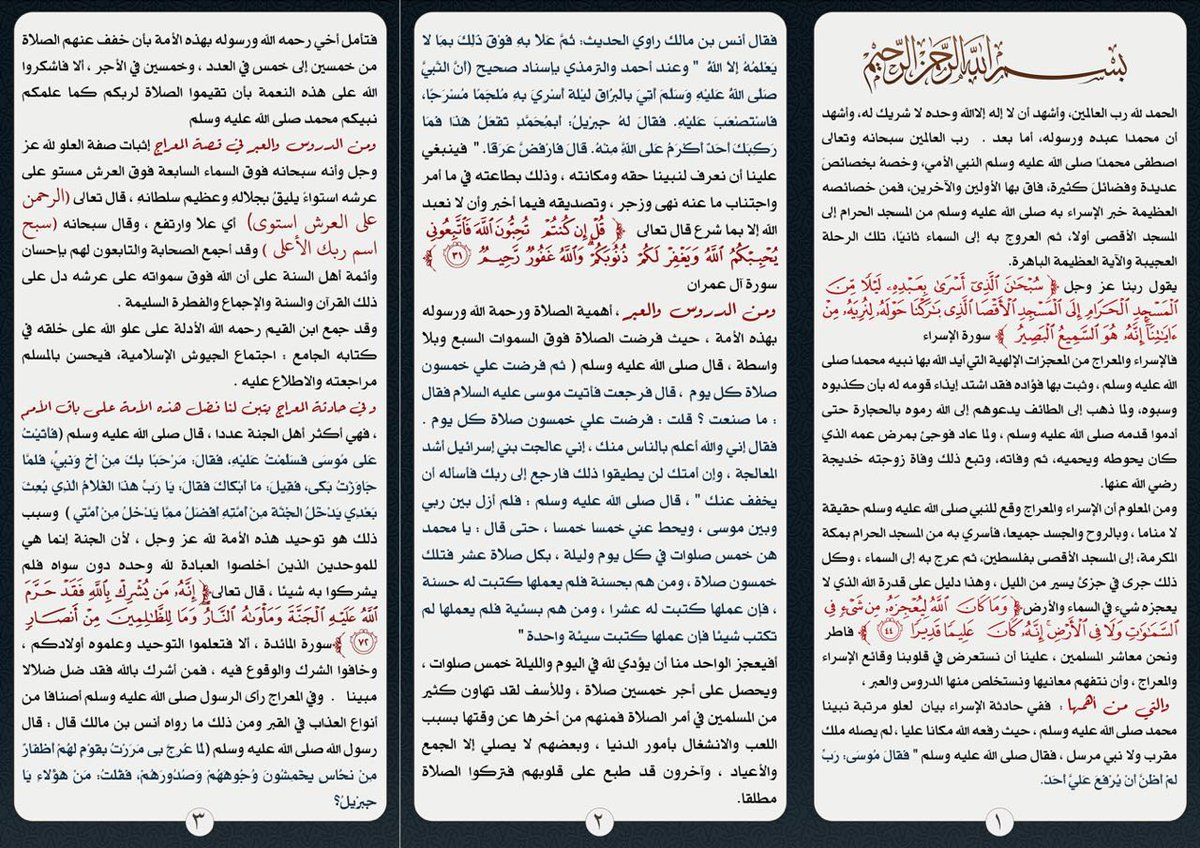 بسم الله الرحمن الرحيم
الحمد لله رب العالمين، وأشهد أن لا إله إلاالله وحده لا شريك له، وأشهد
أن محمدا عبده ورسوله، أما بعد . رب العالمين سبحانه وتعالى
اصطفى محمدًا صلى الله عليه وسلم النبي الأمي، وخصهُ بخصائصَ
عديدة وفضائلَ كثيرة، فاق بها الأولين والآخرين، فمن خصائصه
العظيمة خبر الإسراء به صلى الله عليه وسلم من المسجد الحرام إلى
المسجد الأقصى أولا، ثم العروج به إلى السماء ثانيًا، تلك الرحلة
العجيبة والآية العظيمة الباهرة.
يقول ربنا عز وجل ﴿ سُبْحَٰنَ ٱلَّذِىٓ أَسْرَىٰ بِعَبْدِهِۦ لَيْلًا مِّنَ
ٱلْمَسْجِدِ ٱلْحَرَامِ إِلَى ٱلْمَسْجِدِ ٱلْأَقْصَا ٱلَّذِى بَٰرَكْنَا حَوْلَهُۥ لِنُرِيَهُۥ مِنْ
ءَايَٰتِنَآ إِنَّهُۥ هُوَ ٱلسَّمِيعُ ٱلْبَصِيرُ ﴾ سورة الإسراء
فالإسراء والمعراج من المعجزات الإلهية التي أيد الله بها نبيه محمدا صلى
الله عليه وسلم ، وثبت بها فؤاده فقد اشتد إيذاء قومه له بأن كذبوه
وسبوه، ولما ذهب إلى الطائف يدعوهم إلى الله رموه بالحجارة حتى
أدموا قدمه صلى الله عليه وسلم ، ولما عاد فوجئ بمرض عمه الذي
كان يحوطه ويحميه، ثم وفاته، وتبع ذلك وفاة زوجته خديجة
رضي الله عنها.
ومن المعلوم أن الإسراء والمعراج وقع للنبي صلى الله عليه وسلم حقيقة
لا مناما ، وبالروح والجسد جميعا، فأسري به من المسجد الحرام بمكة
المكرمة، إلى المسجد الأقصى بفلسطين، ثم عرج به إلى السماء ، وكل
ذلك جرى في جزئ يسير من الليل ، وهذا دليل على قدرة الله الذي لا
يعجزه شيء في السماء والأرض﴿ وَمَا كَانَ ٱللَّهُ لِيُعْجِزَهُۥ مِن شَىْءٍ فِى
ٱلسَّمَٰوَٰتِ وَلَا فِى ٱلْأَرْضِ إِنَّهُۥ كَانَ عَلِيمًا قَدِيرًا ٤٤ ﴾ فاطر
ونحن معاشر المسلمين ، علينا أن نستعرض في قلوبنا وقائع الإسراء
والمعراج ، وأن نتفهم معانيها ونستخلص منها الدروس والعبر ،
والتي من أهمها : ففي حادثة الإسراء بيان لعلو مرتبة نبينا
محمد صلى الله عليه وسلم ، حيث رفعه الله مكانا عليا ، لم يصله ملك
مقرب ولا نبي مرسل ، فقال صلى الله عليه وسلم " فَقالَ مُوسَى: رَبِّ
لَمْ أظُنَّ أن يُرْفَعَ عَلَيَّ أحَدٌ.
١
فقال أنس بن مالك راوي الحديث: ثُمَّ عَلَا بهِ فَوْقَ ذلكَ بما لا
يَعْلَمُهُ إلَّا اللهُ " وعند أحمد والترمذي بإسناد صحيح (أنَّ النَّبيَّ
صلَّى اللهُ علَيهِ وسلَّمَ أُتيَ بالبُراقِ ليلةَ أُسْرِيَ بهِ مُلجَمًا مُسرَجًا،
فاستَصعَبَ علَيهِ. فقالَ لهُ جبريلُ: أبمُحمَّدٍ تَفعَلُ هذا فمَا
رَكِبَكَ أحَدٌ أكرَمُ على اللهِ مِنْهُ. قال فارْفَضَّ عَرَقًا. " فينبغي
علينا أن نعرف لنبينا حقه ومكانته ، وذلك بطاعته في ما أمر
واجتناب ما عنه نهى وزجر ، وتصديقه فيما أخبر وأن لا نعبد
الله إلا بما شرع قال تعالى ﴿ قُلْ إِن كُنتُمْ تُحِبُّونَ ٱللَّهَ فَٱتَّبِعُونِى
يُحْبِبْكُمُ ٱللَّهُ وَيَغْفِرْ لَكُمْ ذُنُوبَكُمْ وَٱللَّهُ غَفُورٌ رَّحِيمٌ ٣١ ﴾
سورة آل عمران
ومن الدروس والعبر ، أهمية الصلاة ورحمة الله ورسوله
بهذه الأمة ، حيث فرضت الصلاة فوق السموات السبع وبلا
واسطة ، قال صلى الله عليه وسلم ( ثم فرضت علي خمسون
صلاة كل يوم ، قال فرجعت فأتيت موسى عليه السلام فقال
: ما صنعت ؟ قلت : فرضت علي خمسون صلاة كل يوم .
فقال إني والله أعلم بالناس منك ، إني عالجت بني إسرائيل أشد
المعالجة ، وإن أمتك لن يطيقوا ذلك فارجع إلى ربك فاسأله ان
يخفف عنك " ، قال صلى الله عليه وسلم : فلم أزل بين ربي
وبين موسى ، ويحط عني خمسا خمسا ، حتى قال : يا محمد
هن خمس صلوات في كل يوم وليلة ، بكل صلاة عشر فتلك
خمسون صلاة ، ومن هم بحسنة فلم يعملها كتبت له حسنة
، فإن عملها كتبت له عشرا ، ومن هم بسئية فلم يعملها لم
تكتب شيئا فإن عملها كتبت سيئة واحدة "
أفيعجز الواحد منا أن يؤدي لله في اليوم والليلة خمس صلوات ،
ويحصل على أجر خمسين صلاة ، وللأسف لقد تهاون كثير
من المسلمين في أمر الصلاة فمنهم من أخرها عن وقتها بسبب
اللعب والانشغال بأمور الدنيا ، وبعضهم لا يصلي إلا الجمع
والأعياد ، وآخرون قد طبع على قلوبهم فتركوا الصلاة
مطلقا.
٢
فتأمل أخي رحمه الله ورسوله بهذه الأمة بأن خفف عنهم الصلاة
من خمسين إلى خمس في العدد ، وخمسين في الأجر ، ألا فاشكروا
الله على هذه النعمة بأن تقيموا الصلاة لربكم كما علمكم
نبيكم محمد صلى الله عليه وسلم
ومن الدروس والعبر في قصة المعراج إثبات صفة العلو لله عز
وجل وأنه سبحانه فوق السماء السابعة فوق العرش مستو على
عرشه استواءً يليقُ بجلاله وعظيم سلطانه ، قال تعالى (الرحمن
على العرش استوى) أي علا وارتفع ، وقال سبحانه (سبح
اسم ربك الأعلى ) وقد أجمع الصحابة والتابعون لهم بإحسان
وأئمة أهل السنة على أن الله فوق سمواته على عرشه دل على
ذلك القرآن والسنة والإجماع والفطرة السليمة .
وقد جمع ابن القيم رحمه الله الأدلة على علو الله على خلقه في
كتابه الجامع : اجتماع الجيوش الإسلامية، فيحسن بالمسلم
مراجعته والاطلاع عليه .
وفي حادثة المعراج يتبين لنا فضل هذه الأمة على باقي الأمم
، فهي أكثر أهل الجنة عددا ، قال صلى الله عليه وسلم (فأتَيْتُ
علَى مُوسَى فَسَلَّمْتُ عليه، فَقالَ: مَرْحَبًا بكَ مِن أخٍ ونَبِيٍّ، فَلَمَّا
جاوَزْتُ بَكَى، فقِيلَ: ما أبْكاكَ فَقالَ: يا رَبِّ هذا الغُلامُ الذي بُعِثَ
بَعْدِي يَدْخُلُ الجَنَّةَ مِن أُمَّتِهِ أفْضَلُ ممَّا يَدْخُلُ مِن أُمَّتِي ) وسبب
ذلك هو توحيد هذه الأمة لله عز وجل ، لأن الجنة إنما هي
للموحدين الذين أخلصوا العبادة لله وحده دون سواه فلم
يشركوا به شيئا ، قال تعالى﴿ إِنَّهُۥ مَن يُشْرِكْ بِٱللَّهِ فَقَدْ حَرَّمَ
ٱللَّهُ عَلَيْهِ ٱلْجَنَّةَ وَمَأْوَىٰهُ ٱلنَّارُ وَمَا لِلظَّٰلِمِينَ مِنْ أَنصَارٍ
٧٢ ﴾سورة المائدة ، ألا فتعلموا التوحيد وعلموه أولادكم ،
وخافوا الشرك والوقوع فيه ، فمن أشرك بالله فقد ضل ضلالا
مبينا . وفي المعراج رأى الرسول صلى الله عليه وسلم أصنافا من
أنواع العذاب في القبر ومن ذلك ما رواه أنس بن مالك قال : قال
رسول الله صلى الله عليه وسلم (لما عُرِجَ بي مَرَرْتُ بقومٍ لهُمْ أظفارٌ
مِنْ نُحاسٍ يخْمِشُونَ وُجُوهَهُمْ وصُدُورَهُمْ، فقُلتُ: مَنْ هؤلاءِ يا
جبريلُ؟
٣